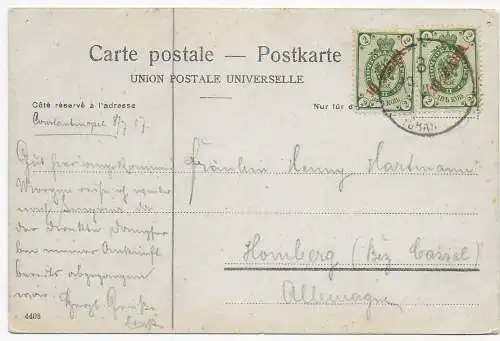 Carte postale — Postkarte
UNION POSTALE UNIVERSELLE
Côté réservé à l'adresse
Nur für d
Constantinopel 8/7 07.
Gut hier angekommen
Morgen reise ich weiter
nach
der direkte Dampfer
bei meiner Ankunft
bereits abgegangen
war. Herzl Grüße
Fräulein Henny Hartmann
Homberg (Bez Cassel)
Allemagne
4408